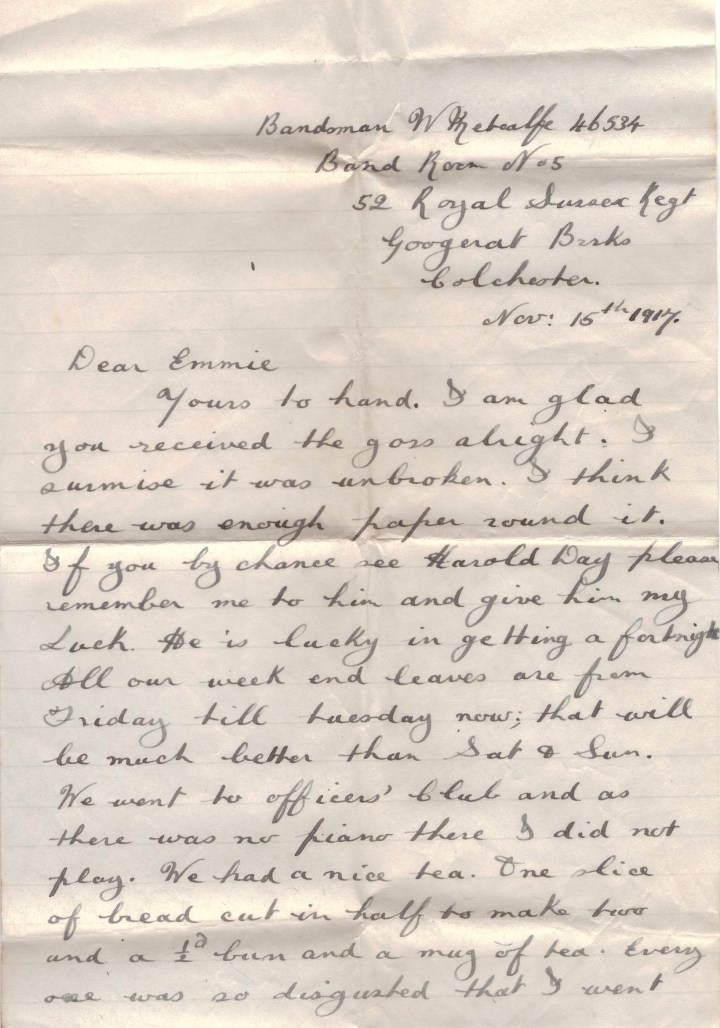 Bandsman W Metcalfe 46534
Band Room No 5
52 Royal Sussex Regt
Googerat Barks
Colchester.
Nov: 15th 1917.
Dear Emmie
Yours to hand. I am glad
you received the goss alright. I
surmise it was unbroken. I think
there was enough paper round it.
If you by chance see Harold Day please
remember me to him and give him my
Luck. He is lucky in getting a fortnight
All our week end leaves are from
Friday till tuesday now; that will
be much better than Sat & Sun.
We went to officers' Club and as
there was no piano there I did not
play. We had a nice tea. One slice
of bread cut in half to make two
and a ½d bun and a mug of tea. Every
one was so disgusted that I went